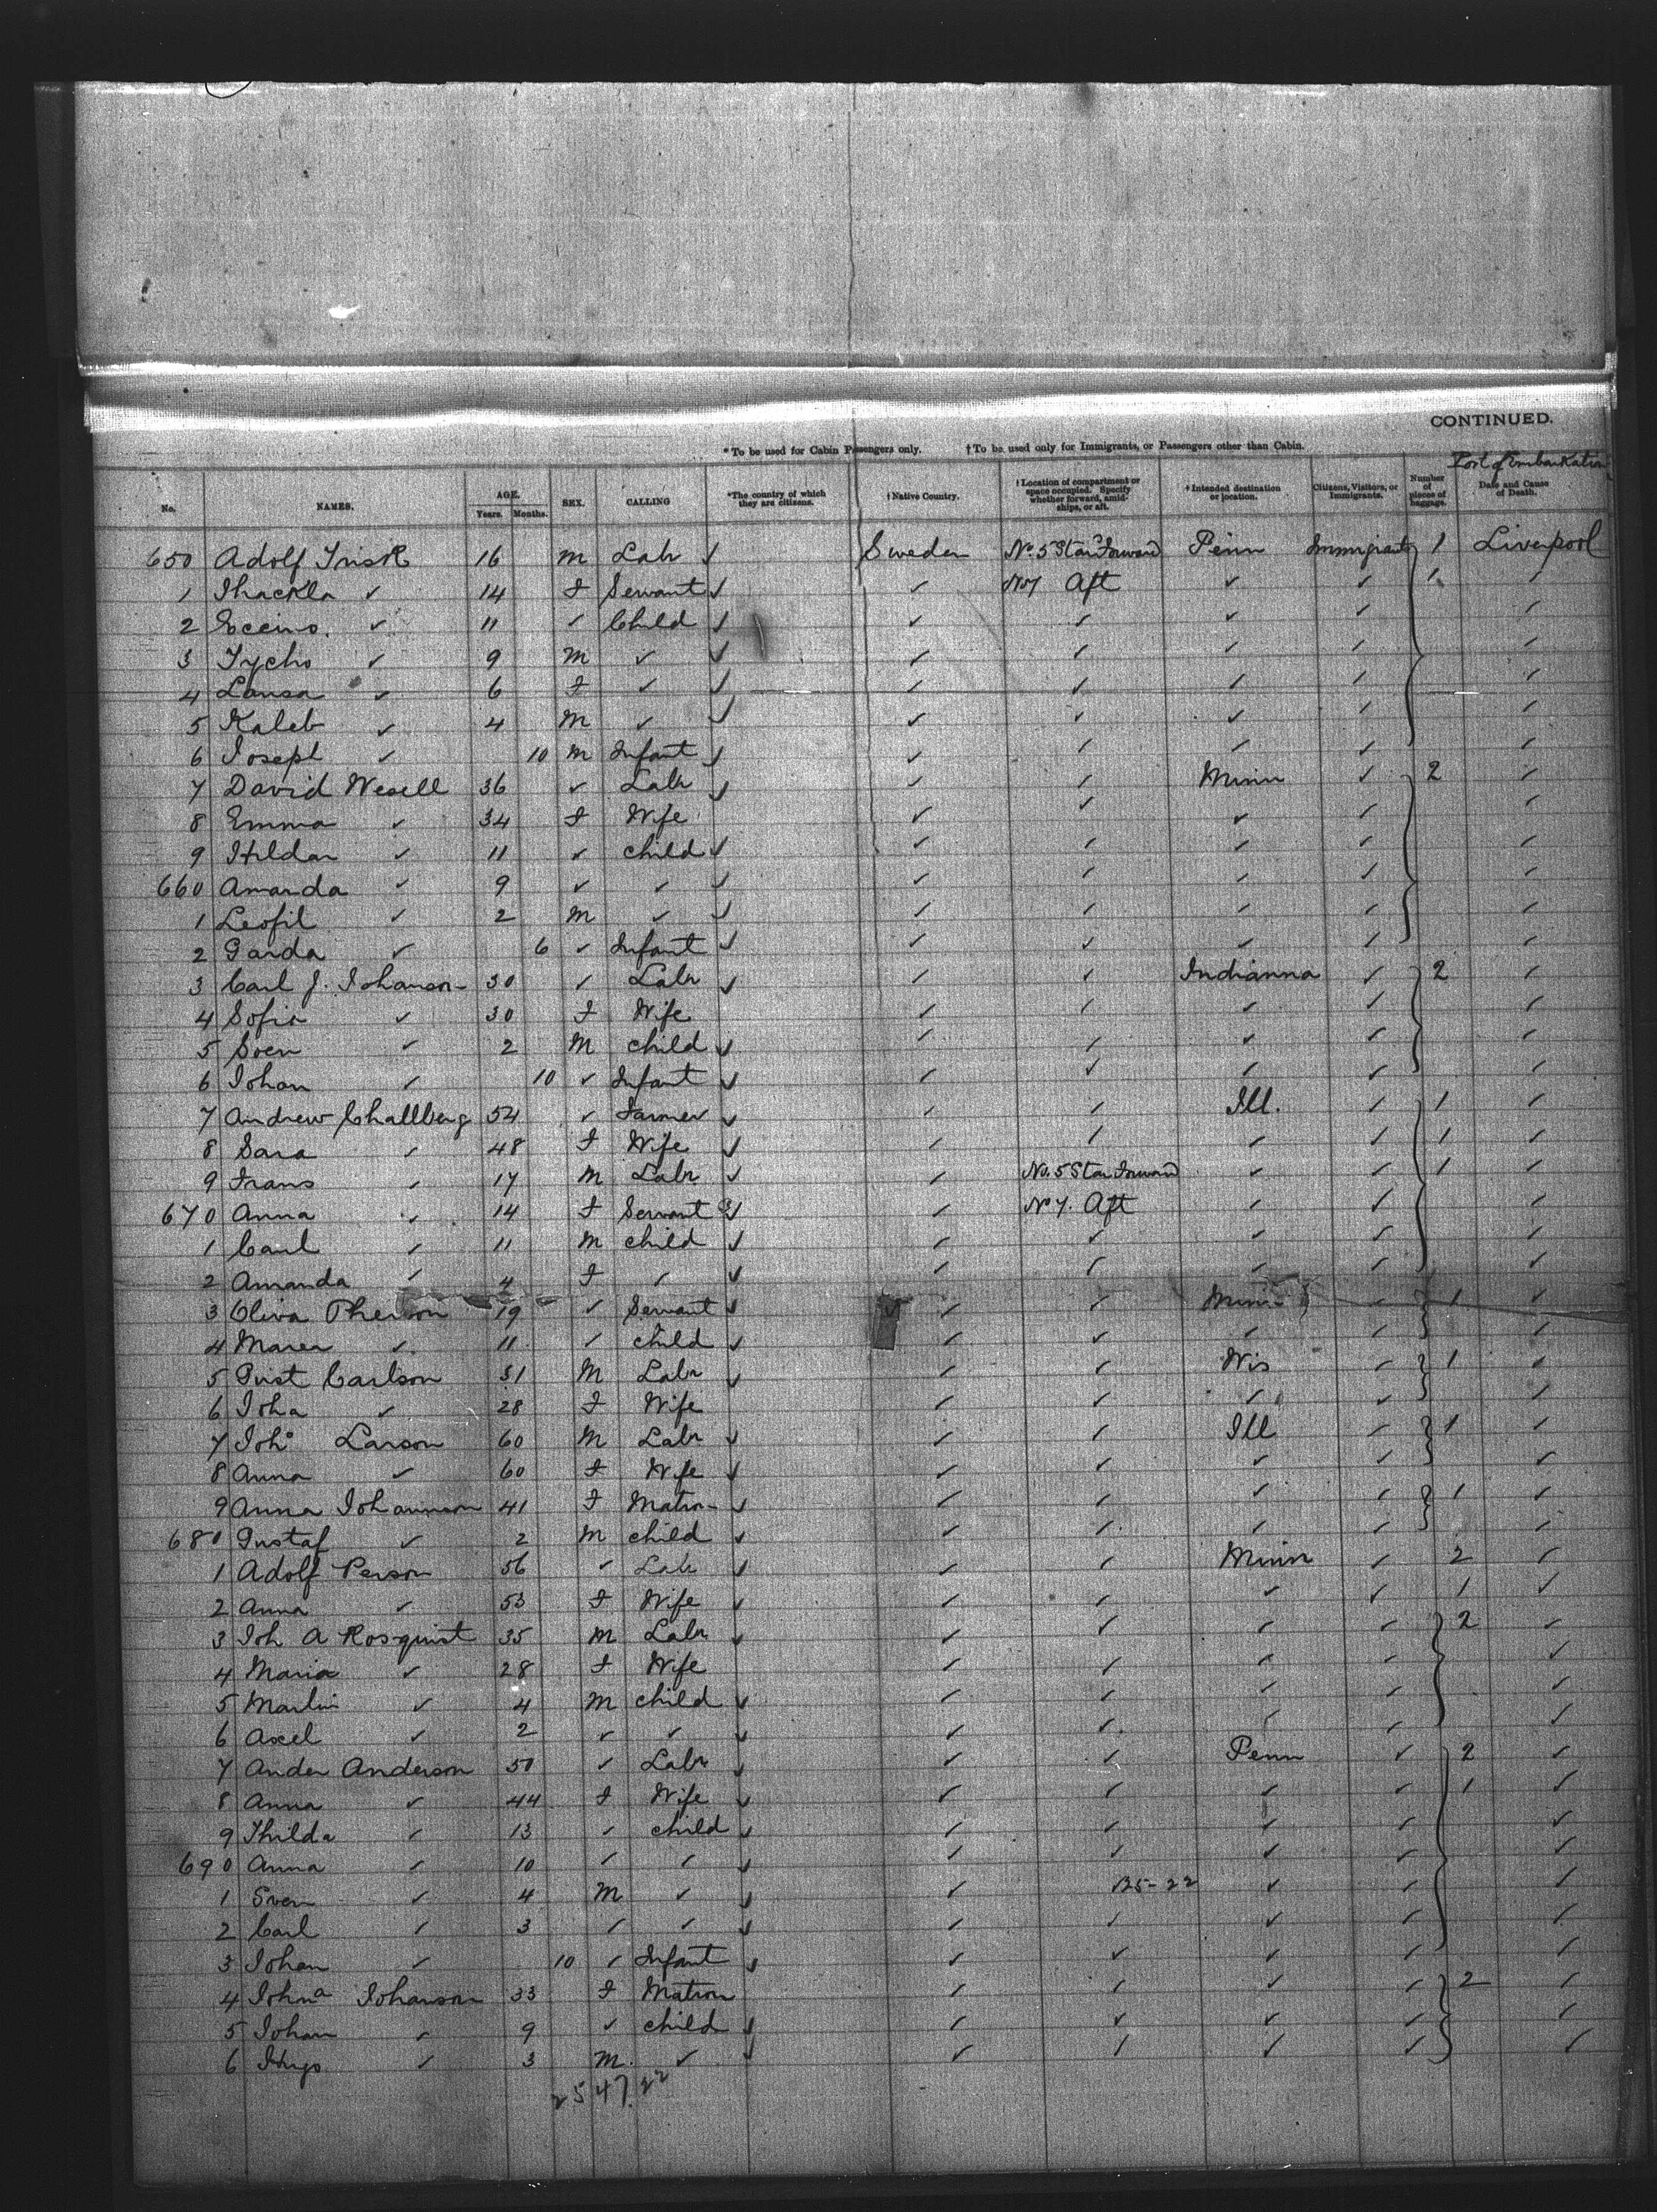 CONTINUED.
* To be used for Cabin Passengers only. † To be used only for Immigrants, or Passengers other than Cabin.
Port of Embarkation
No. NAMES. AGE. Years. Months. SEX. CALLING *The country of which they are citizens. † Native Country. † Location of compartment or space occupied. Specify whether forward, amidships, or aft. † Intended destination or location. Citizens, Visitors, or Immigrants. Number of pieces of baggage. Date and Cause of Death.
650 Adolf Frisk 16 m Labr ✓ Sweden No. 5 Star Forward Penn Immigrants 1 Liverpool
1 Thackla ✓ 14 f Servant ✓ ✓ No 7 Aft ✓ ✓ 1 ✓
2 ✓ 11 ✓ Child ✓ ✓ ✓ ✓ ✓ ✓
3 Tycho ✓ 9 m ✓ ✓ ✓ ✓ ✓ ✓ ✓
4 Laura ✓ 6 f ✓ ✓ ✓ ✓ ✓ ✓ ✓
5 Kaleb ✓ 4 m ✓ ✓ ✓ ✓ ✓ ✓ ✓
6 Joseph ✓ 10 m Infant ✓ ✓ ✓ ✓ ✓ ✓
7 David Wesell 36 ✓ Labr ✓ ✓ ✓ Minn ✓ 2 ✓
8 Emma ✓ 34 f Wife ✓ ✓ ✓ ✓ ✓
9 Hildar ✓ 11 ✓ child ✓ ✓ ✓ ✓ ✓ ✓
660 Amanda ✓ 9 ✓ ✓ ✓ ✓ ✓ ✓ ✓ ✓
1 Leofil ✓ 2 m ✓ ✓ ✓ ✓ ✓ ✓ ✓
2 Garda ✓ 6 ✓ Infant ✓ ✓ ✓ ✓ ✓ ✓
3 Carl J. Johanson 30 ✓ Labr ✓ ✓ ✓ Indianna ✓ 2 ✓
4 Sofia ✓ 30 f Wife ✓ ✓ ✓ ✓ ✓
5 Sven ✓ 2 m child ✓ ✓ ✓ ✓ ✓ ✓
6 Johan ✓ 10 ✓ Infant ✓ ✓ ✓ ✓ ✓ ✓
7 Andrew Challberg 54 ✓ Farmer ✓ ✓ ✓ Ill. ✓ 1 ✓
8 Sara ✓ 48 f Wife ✓ ✓ ✓ ✓ ✓ 1 ✓
9 Frans ✓ 17 m Labr ✓ ✓ No. 5 Star Forward ✓ ✓ 1 ✓
670 Anna ✓ 14 f Servant ✓ ✓ No 7. Aft ✓ ✓ ✓
1 Carl ✓ 11 m child ✓ ✓ ✓ ✓ ✓ ✓
2 Amanda ✓ 4 f ✓ ✓ ✓ ✓ ✓ ✓ ✓
3 Oliva 19 ✓ Servant ✓ ✓ ✓ Minn ✓ 1 ✓
4 Maren ✓ 11 ✓ child ✓ ✓ ✓ ✓ ✓ ✓
5 Gust Carlson 31 m Labr ✓ ✓ ✓ Wis ✓ 1 ✓
6 Joha ✓ 28 f Wife ✓ ✓ ✓ ✓ ✓
7 Joh° Larson 60 m Labr ✓ ✓ ✓ Ill ✓ 1 ✓
8 Anna ✓ 60 f Wife ✓ ✓ ✓ ✓ ✓ ✓
9 Anna Johannson 41 f Matron ✓ ✓ ✓ ✓ ✓ 1 ✓
680 Gustaf ✓ 2 m child ✓ ✓ ✓ ✓ ✓ ✓
1 Adolf Person 56 ✓ Labr ✓ ✓ ✓ Minn ✓ 2 ✓
2 Anna ✓ 53 f Wife ✓ ✓ ✓ ✓ ✓ 1 ✓
3 Joh A Rosquist 35 m Labr ✓ ✓ ✓ ✓ ✓ 2 ✓
4 Maria ✓ 28 f Wife ✓ ✓ ✓ ✓ ✓
5 Marlin ✓ 4 m child ✓ ✓ ✓ ✓ ✓ ✓
6 Axel ✓ 2 ✓ ✓ ✓ ✓ ✓ ✓ ✓ ✓
7 Ander Anderson 50 ✓ Labr ✓ ✓ ✓ Penn ✓ 2 ✓
8 Anna ✓ 44 f Wife ✓ ✓ ✓ ✓ ✓ 1 ✓
9 Thilda ✓ 13 ✓ child ✓ ✓ ✓ ✓ ✓ ✓
690 Anna ✓ 10 ✓ ✓ ✓ ✓ ✓ ✓ ✓ ✓
1 Sven ✓ 4 m ✓ ✓ ✓ ✓ ✓ ✓
2 Carl ✓ 3 ✓ ✓ ✓ ✓ ✓ ✓ ✓ ✓
3 Johan ✓ 10 ✓ Infant ✓ ✓ ✓ ✓ ✓ ✓
4 Johna Johanson 33 f Matron ✓ ✓ ✓ ✓ 2 ✓
5 Johan ✓ 9 ✓ child ✓ ✓ ✓ ✓ ✓ ✓
6 Hugo ✓ 3 m. ✓ ✓ ✓ ✓ ✓ ✓ ✓
2547.22